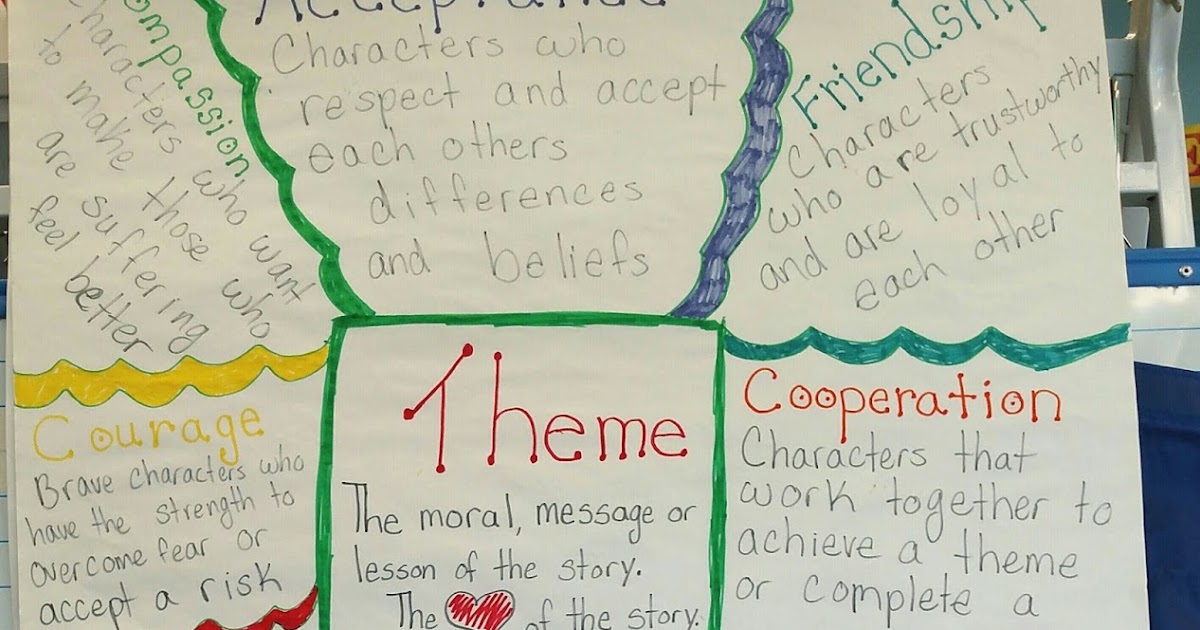 Compassion
Characters who want
to make those who
are suffering
feel better
Acceptance
Characters who
respect and accept
each others
differences
and beliefs
Friendship
Characters
who are trustworthy
and are loyal to
each other
Courage
Brave characters who
have the strength to
overcome fear or
accept a risk
Theme
The moral, message or
lesson of the story.
The of the story.
Cooperation
Characters that
work together to
achieve a theme
or complete a